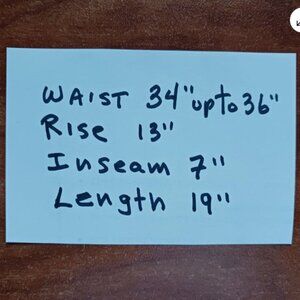 WAIST 34" up to 36"
Rise 13"
Inseam 7"
Length 19"